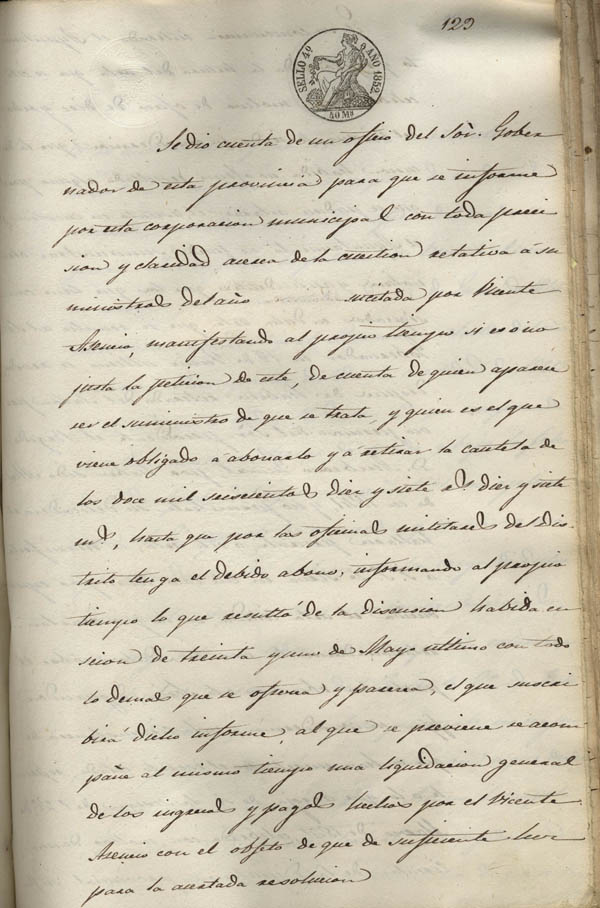 129
SELLO 4º AÑO 1852
40 Ms
Se dio cuenta de un oficio del Sòr. Gober
nador de esta provincia para que se informe
por esta corporacion municipal con toda preci
sion y claridad acerca de la cuestion relativa á su
ministros del año suscitada por Vicente
Asencio, manifestando al propio tiempo si es ó no
justa la peticion de este, de cuenta de quien aparece
ser el suministro de que se trata, y quien es el que
viene obligado á abonarlo y á retirar la cautela de
los doce mil seiscientos diez y siete rs. diez y siete
ms, hasta que por las oficinas militares del dis
trito tenga el debido abono, informando al propio
tiempo lo que resultó de la discusion habida en
sesion de treinta y uno de Mayo ultimo con todo
lo demas que se ofrezca y parezca, el que suscri
birá dicho informe, al que se previene se acom
pañe al mismo tiempo una liquidacion general
de los ingresos y pagos hechos por el Vicente
Asencio con el objeto de que de suficiente luz
para la acertada resolucion